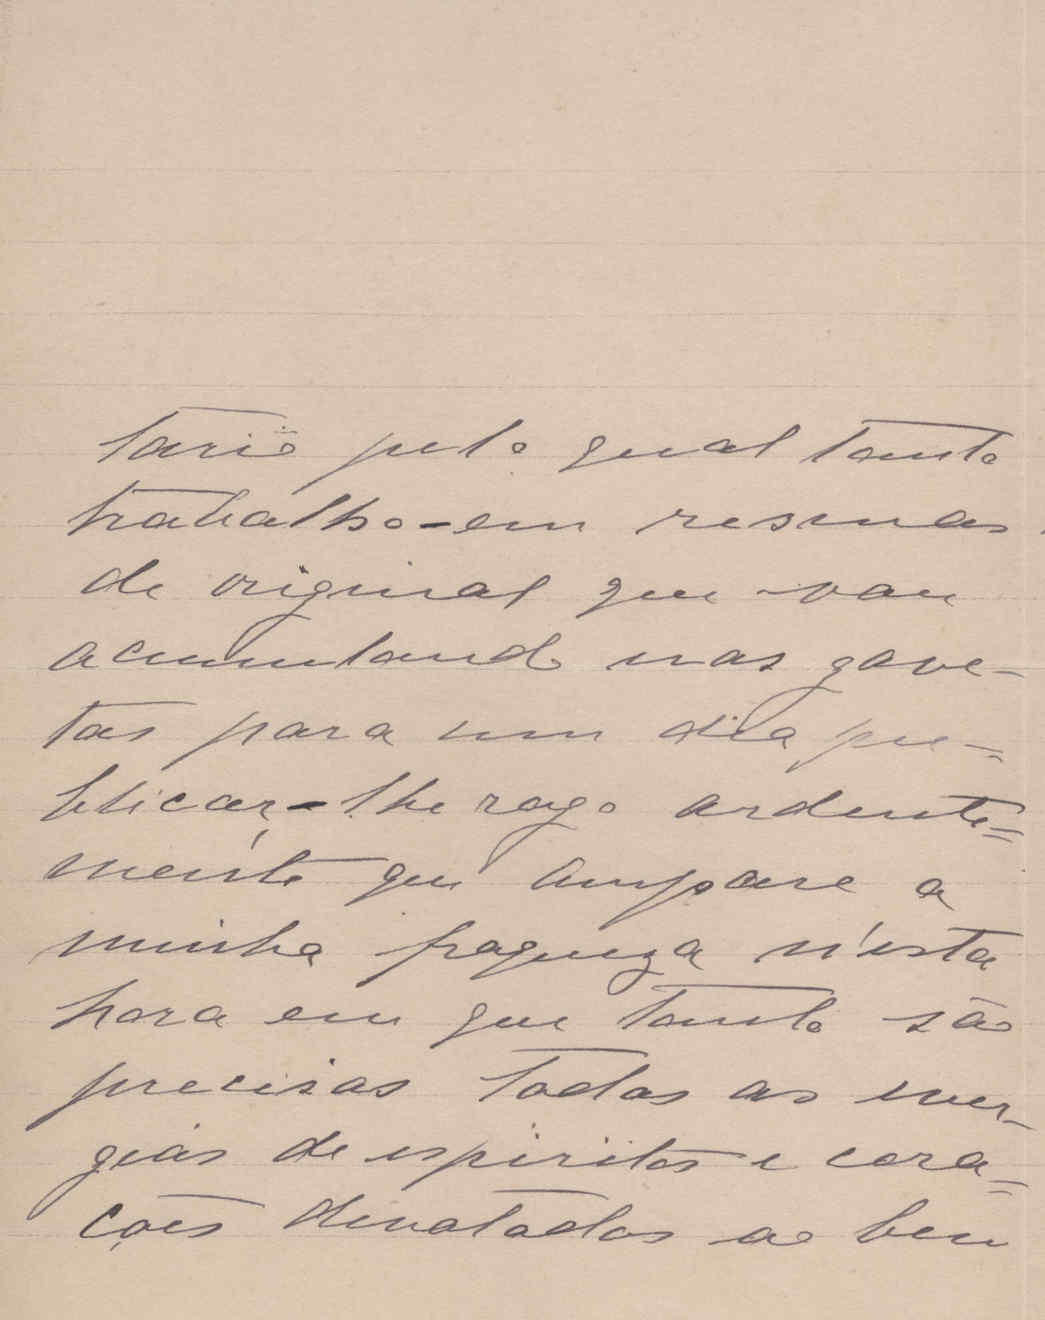 tario pelo qual tanto
trabalho - em resmas
de original que vou
acumulando nas gave-
tas para um dia pu-
blicar - lhe rogo ardente-
mente que ampare a
minha fraqueza n'esta
hora em que tanto são
precisas todas as ener-
gias de espiritos e cora-
ções devotados ao bem